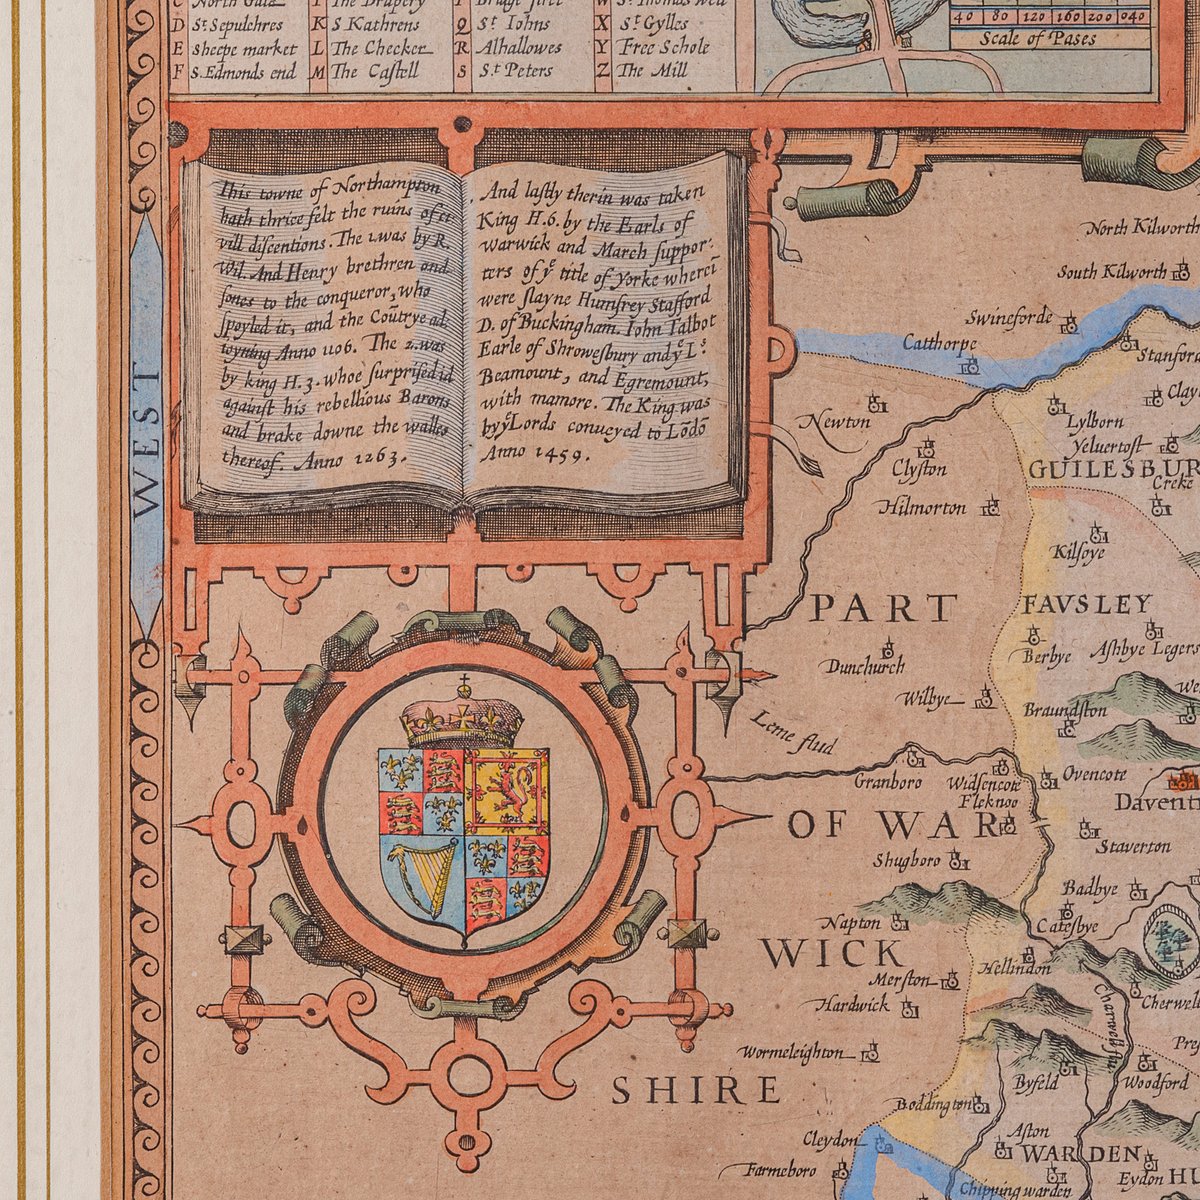 D St Sepulchres K S Kathrens Q St Iohns X St Gylles
E sheepe market L The Checker R Alhallowes Y Free Schole
F S. Edmonds end M The Castell S St Peters Z The Mill
40 80 120 160 200 040
Scale of Pases
This towne of Northampton
hath thrice felt the ruins of ci
vill discentions. The 1. was by R.
Wil. And Henry brethren and
sones to the conqueror, who
spoyled it, and the Coūtrye ad
ioyning Anno 1106. The 2. was
by king H. 3. whoe surprised it
against his rebellious Barons
and brake downe the walles
thereof. Anno 1263.
And lastly therin was taken
King H. 6. by the Earls of
Warwick and March suppor-
ters of yͤ title of Yorke whereī
were slayne Humfrey Stafford
D. of Buckingham. Iohn Talbot
Earle of Shrowesbury and yͤ Ls
Beamount, and Egremount,
with mamore. The King was
by yͤ Lords conueyed to Lōdō
Anno 1459.
WEST
North Kilworth
South Kilworth
Swineforde
Catthorpe
Stanford
Newton
Lylborn
Yeluertoft
Clyston
GUILESBUR
Creke
Hilmorton
Kilsoye
PART
FAVSLEY
Berbye
Ashbye Legers
Dunchurch
Wilbye
Braundston
Leme flud
Granboro
Widsencote
Ovencote
Fleknoo
Davent
OF WAR
Staverton
Shugboro
Badbye
Napton
Catesbye
WICK
Hellindon
Merston
Hardwick
Cherwell flu
Cherwel
Wormeleighton
Byfeld
Woodford
SHIRE
Boddington
Cleydon
Aston
WARDEN
Farmeboro
Eydon
Chipping warden